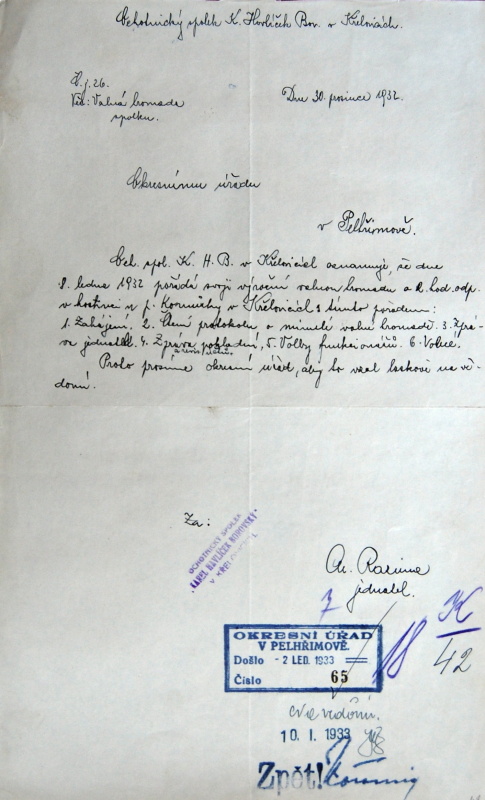 Ochotnický spolek K. Havlíček Bor. v Křelovicích.
Č.j. 26.
Věc: Valná hromada
spolku.
Dne 30. prosince 1932.
Okresnímu úřadu
v Pelhřimově.
Och. spol. K. H. B. v Křelovicích oznamuje, že dne
8. ledna 1932 pořádá svoji výroční valnou hromadu o 2. hod. odp.
v hostinci u p. v Křelovicích s tímto pořadem:
1. Zahájení. 2. Čtení protokolu o minulé valné hromadě. 3. Zprá-
va jednatel. 4. Zpráva pokladní, 5. Volby funkcionářů. 6. Volné.
a revisorů
Proto prosíme okresní úřad, aby to vzal laskavě na vě-
domí.
Za:
OCHOTNICKÝ SPOLEK
KAREL HAVLÍČEK BOROVSKÝ
V
jednatel.
7
K
42
18
OKRESNÍ ÚŘAD
V PELHŘIMOVĚ.
Došlo - 2 LED. 1933
Číslo 65
vědomí.
10. I. 1933
Zpět!